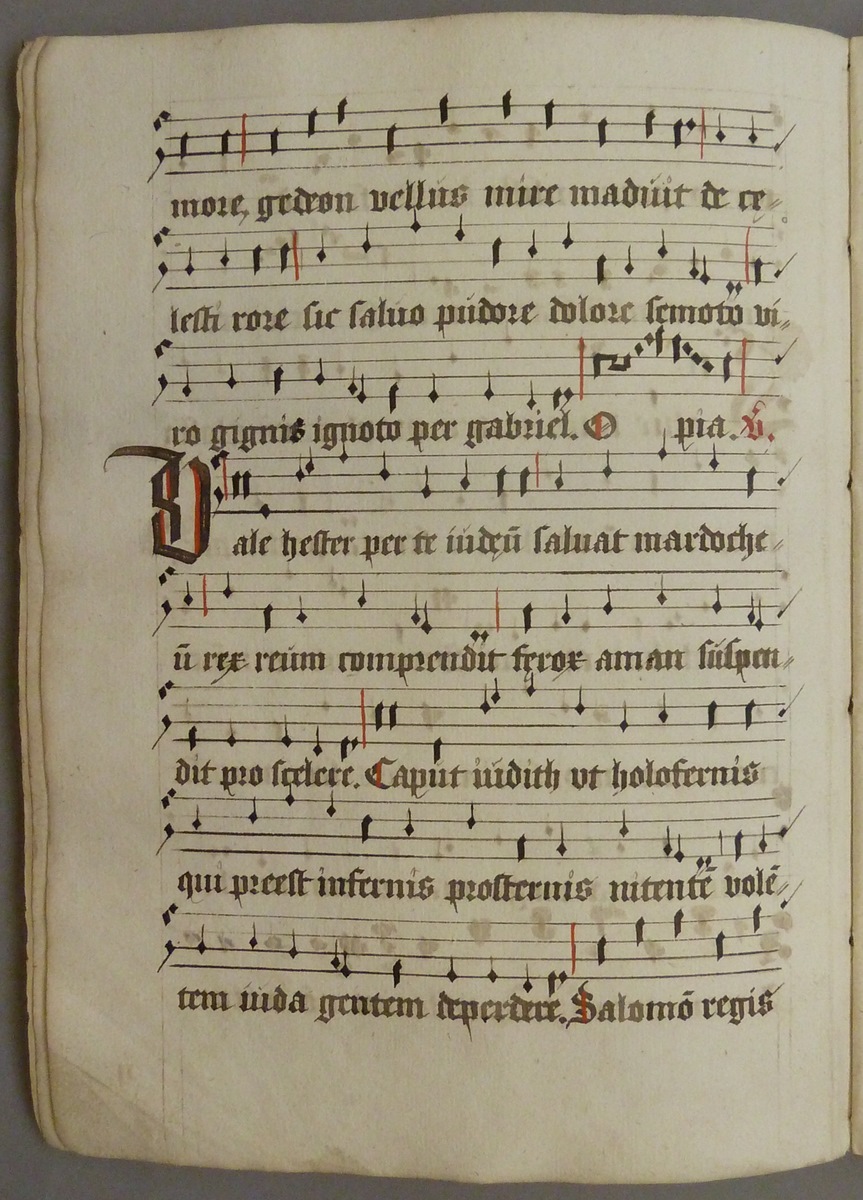 more, gedeon vellus mire maduit de ce-
lesti rore sic saluo pudore dolore semoto vi-
ro gignis ignoto per gabriel. O pia. V.
Vale hester per te iudeū saluat mardoche-
ū rex reum comprendit ferox aman suspen-
dit pro scelere. Caput iudith vt holofernis
qui preest infernis prosternis nitentē volē-
tem iuda gentem deperdere. Salomō regis